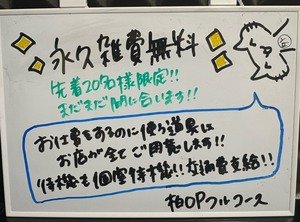 永久雑費無料
先着20名様限定!!
まだまだ間に合います!!
お仕事をするのに使う道具は
お店が全てご用意します!!
待機も個室待機!!交通費支給!!
柏OPフルコース